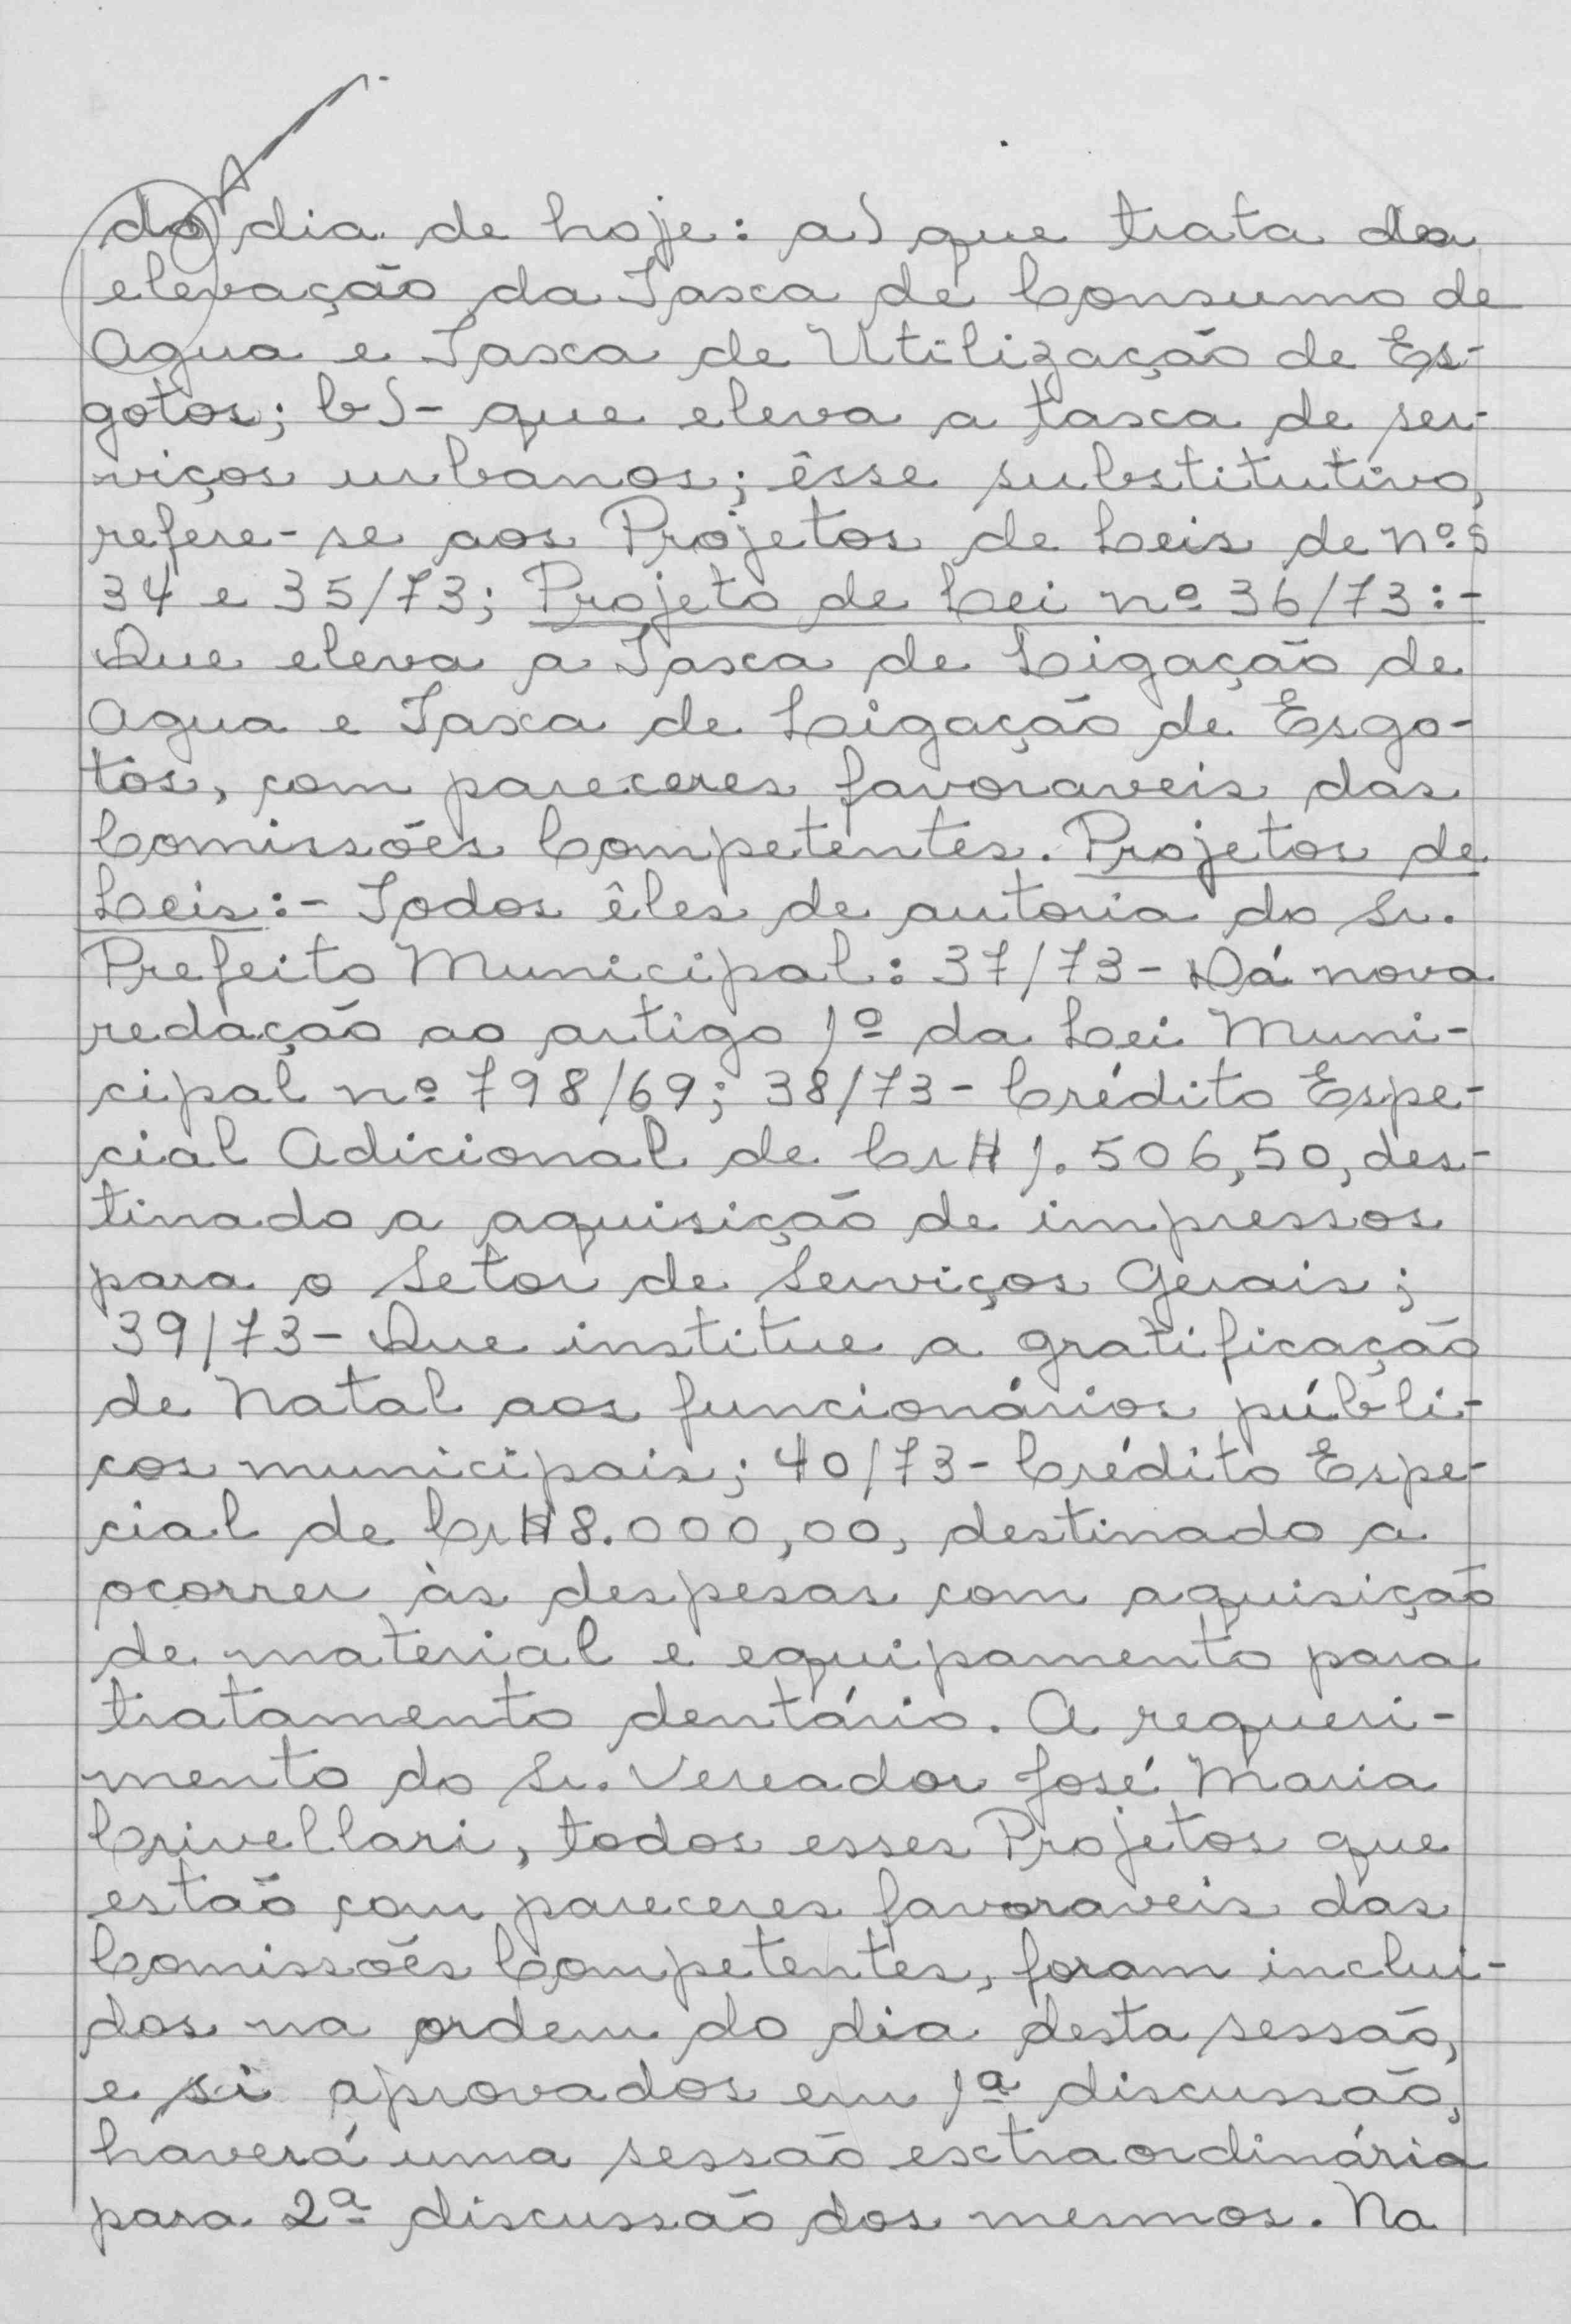 do dia de hoje: a) que trata da
elevação da Taxa de Consumo de
Agua e Taxa de Utilização de Es-
gotos; b)- que eleva a taxa de ser-
viços urbanos; êsse substitutivo,
refere-se aos Projetos de Leis de nºs
34 e 35/73; Projeto de Lei nº 36/73:-
Que eleva a Taxa de Ligação de
Agua e Taxa de Ligação de Esgo-
tos, com pareceres favoraveis das
Comissões Competentes. Projetos de
Leis:- Todos êles de autoria do Sr.
Prefeito Municipal: 37/73- Dá nova
redação ao artigo 1º da Lei Muni-
cipal nº 798/69; 38/73- Crédito Espe-
cial Adicional de Cr$ 1.506,50, des-
tinado a aquisição de impressos
para o Setor de Serviços Gerais;
39/73- Que institue a gratificação
de Natal aos funcionários públi-
cos municipais; 40/73- Crédito Espe-
cial de Cr$ 8.000,00, destinado a
ocorrer às despesas com aquisição
de material e equipamento para
tratamento dentário. A requeri-
mento do Sr. Vereador José Maria
Crivellari, todos esses Projetos que
estão com pareceres favoraveis das
Comissões Competentes, foram inclui-
dos na ordem do dia desta sessão,
e si aprovados em 1ª discussão,
haverá uma sessão extraordinária
para 2ª discussão dos mesmos. Na